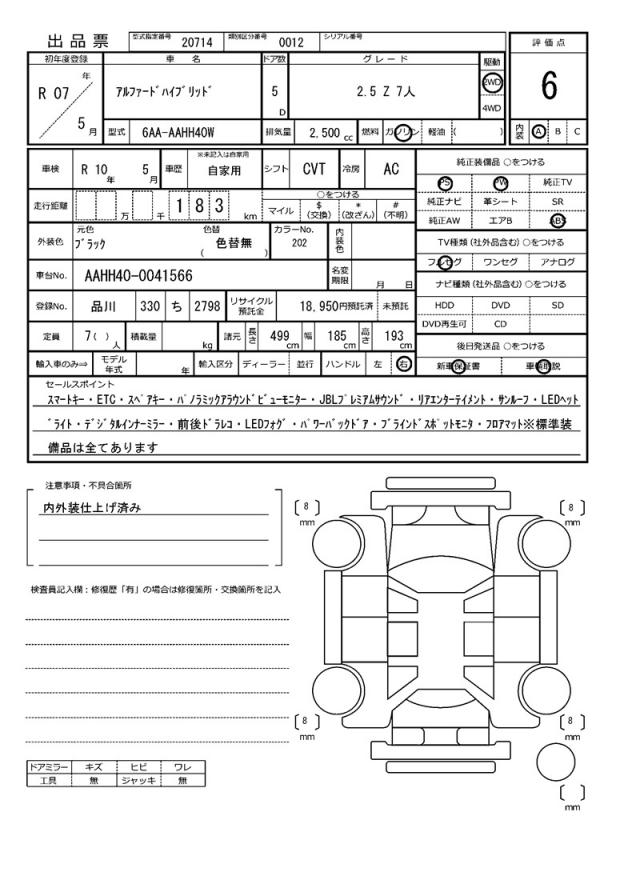 出品票 型式指定番号 20714 類別区分番号 0012 シリアル番号
評価点
6
内装 A B C
初年度登録 車名 ドア数 グレード 駆動
R 07 年 5 月 アルファードハイブリッド 5 D 2.5 Z 7人 2WD 4WD
型式 6AA-AAHH40W 排気量 2,500 cc 燃料 ガソリン 軽油 ( )
車検 R 10 年 5 月 車歴 ※未記入は自家用 自家用 シフト CVT 冷房 AC
走行距離 万 千 1 8 3 km ○をつける マイル $(交換) *(改ざん) #(不明)
外装色 元色 ブラック 色替 ( 色替無 ) カラーNo. 202 内装色
車台No. AAHH40-0041566 名変期限 月 日
登録No. 品川 330 ち 2798 リサイクル預託金 18,950円預託済 未預託
定員 7( )人 積載量 kg 諸元 長さ 499 cm 幅 185 cm 高さ 193 cm
輸入車のみ⇒ モデル年式 年 輸入区分 ディーラー 並行 ハンドル 左 右
純正装備品 ○をつける
PS PW 純正TV
純正ナビ 革シート SR
純正AW エアB ABS
TV種類(社外品含む)○をつける
フルセグ ワンセグ アナログ
ナビ種類(社外品含む)○をつける
HDD DVD SD
DVD再生可 CD
後日発送品 ○をつける
新車保証書 車輌取説
セールスポイント
スマートキー・ETC・スペアキー・パノラミックアラウンドビューモニター・JBLプレミアムサウンド・リアエンターテイメント・サンルーフ・LEDヘット
ドライト・デジタルインナーミラー・前後ドラレコ・LEDフォグ・パワーバックドア・ブラインドスポットモニタ・フロアマット※標準装
備品は全てあります
注意事項・不具合箇所
内外装仕上げ済み
検査員記入欄：修復歴「有」の場合は修復箇所・交換箇所を記入
ドアミラー キズ ヒビ ワレ
工具 無 ジャッキ 無
〔 8 〕 mm
〔 8 〕 mm
〔 8 〕 mm
〔 8 〕 mm
〔 〕 mm